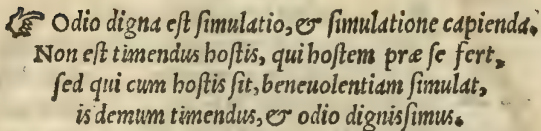 ☞ Odio digna eſt ſimulatio, & ſimulatione capienda.
Non eſt timendus hoſtis, qui hoſtem præ ſe fert,
ſed qui cum hoſtis ſit, beneuolentiam ſimulat,
is demum timendus, & odio digniſsimus.